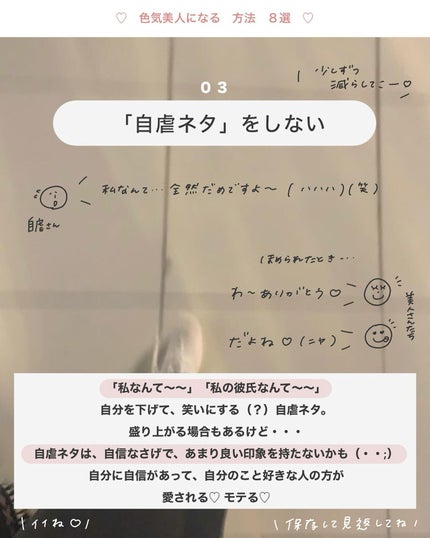 ♡ 色気美人になる 方法 8選 ♡
少しずつ
減らしてこー♡
03
「自虐ネタ」をしない
私なんて…全然だめですよ〜(ハハハ)(笑)
自虐さん
ほめられたとき…
わ〜ありがとう♡
だよね♡(ニヤ)
美人さんたち
「私なんて〜〜」「私の彼氏なんて〜〜」
自分を下げて、笑いにする(?)自虐ネタ。
盛り上がる場合もあるけど・・・
自虐ネタは、自信なさげで、あまり良い印象を持たないかも(・・;)
自分に自信があって、自分のこと好きな人の方が
愛される♡ モテる♡
\イイね♡/
\保存して見返してね/